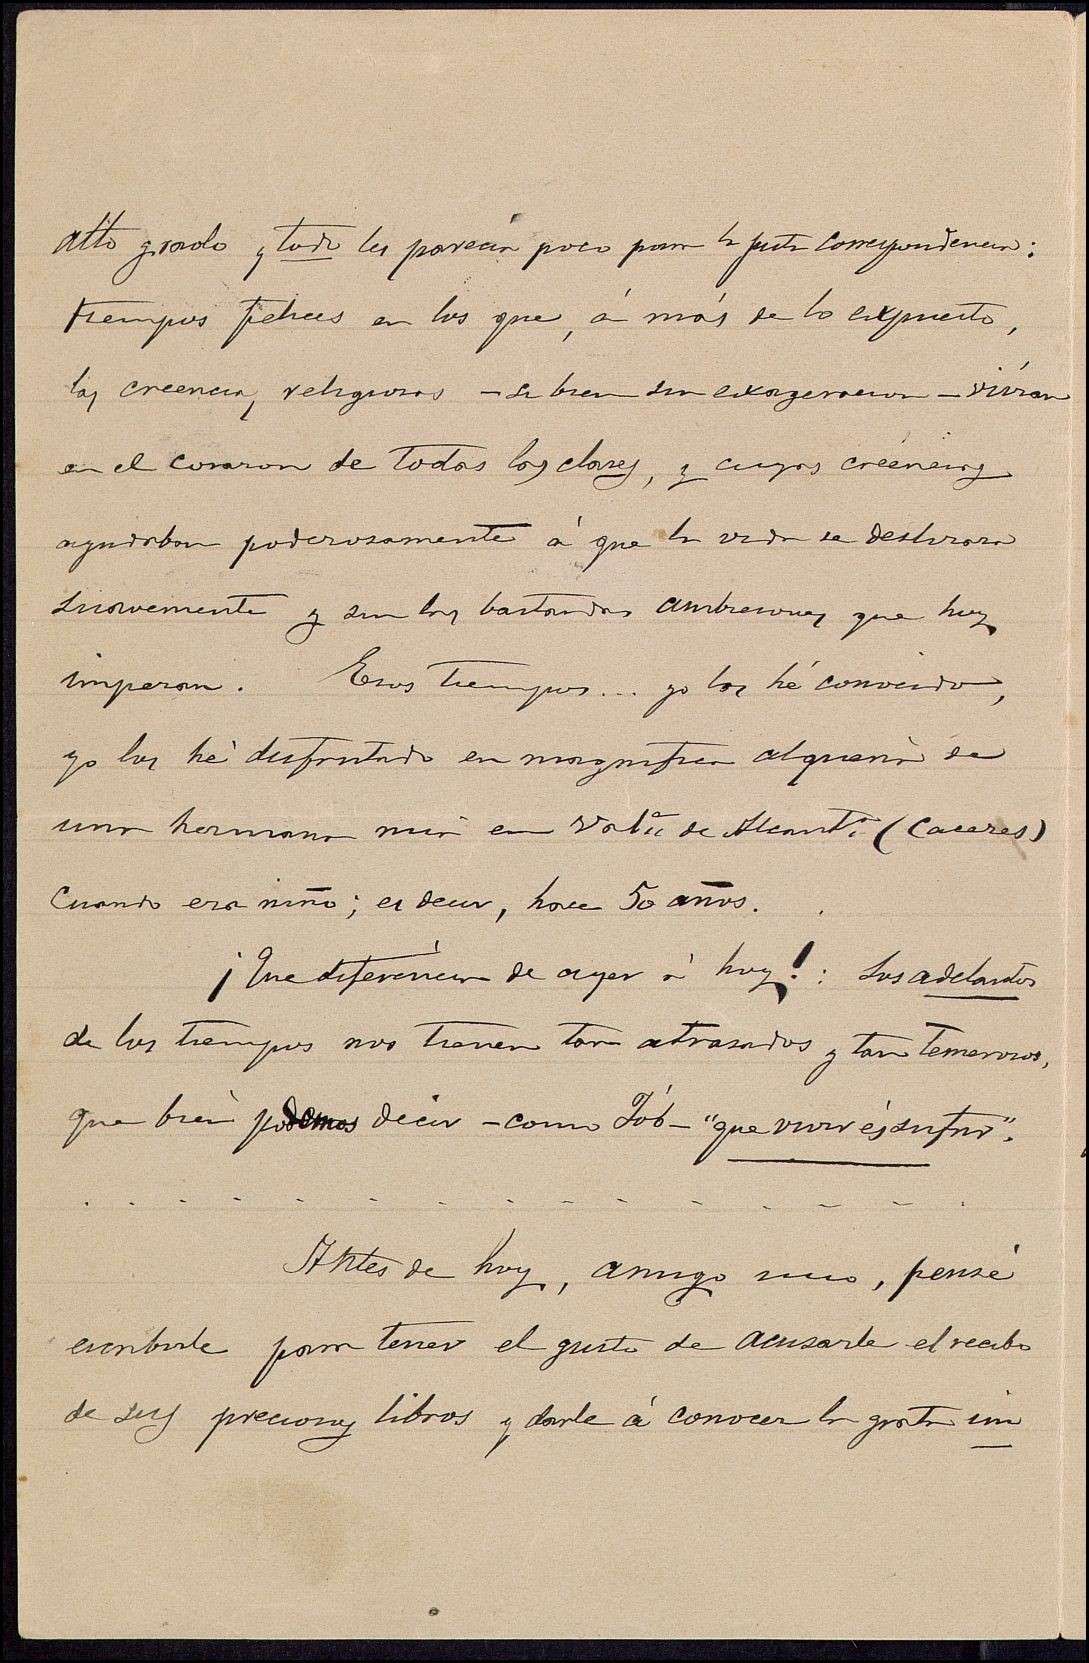 alto grado y todo les parecía poco para la justa correspondencia:
tiempos felices en los que, á más de lo expuesto,
las creencias religiosas – si bien sin exageracion – vivian
en el corazon de todas las clases, y cuyas creéncias
ayudaban poderosamente á que la vida se deslizara
suavemente y sin las bastardas ambiciones que hoy
imperan. Esos tiempos... yo los hé conocido,
yo los hé disfrutado en magnifica alqueria de
una hermana mia en Valª de Alcantª (Caceres)
cuando era niño; es decir, hace 50 años.
¡Que diferéncia de ayer á hoy!: Los adelantos
de los tiempos nos tienen tan atrasados y tan temerosos,
que bien podemos decir – como Jób – "que vivir és sufrir".
. . . . . . . . . . . . . .
Antes de hoy, amigo mio, pensé
escribirle para tener el gusto de acusarle el recibo
de sus preciosos libros y darle á conocer la grata im